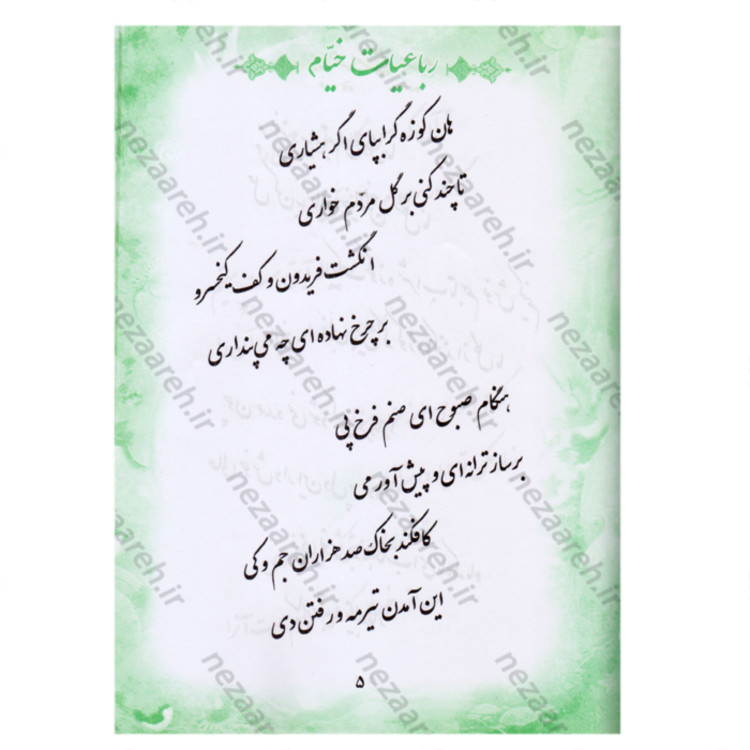 رباعیات خیّام
هان کوزه گرا بپای اگر هشیاری
تا چند کنی بر گل مردم خواری
انگشت فریدون و کف کیخسرو
بر چرخ نهاده ای چه می پنداری
هنگام صبوح ای صنم فرخ پی
بر ساز ترانه ای و پیش آور می
کافکند بخاک صد هزاران جم و کی
این آمدن تیرمه و رفتن دی
۵
nezaareh.ir